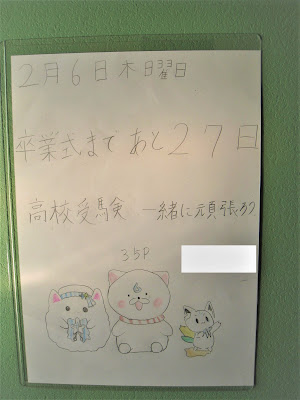 2月6日木曜日
卒業式まで あと27日
高校受験 一緒に頑張ろう
35P